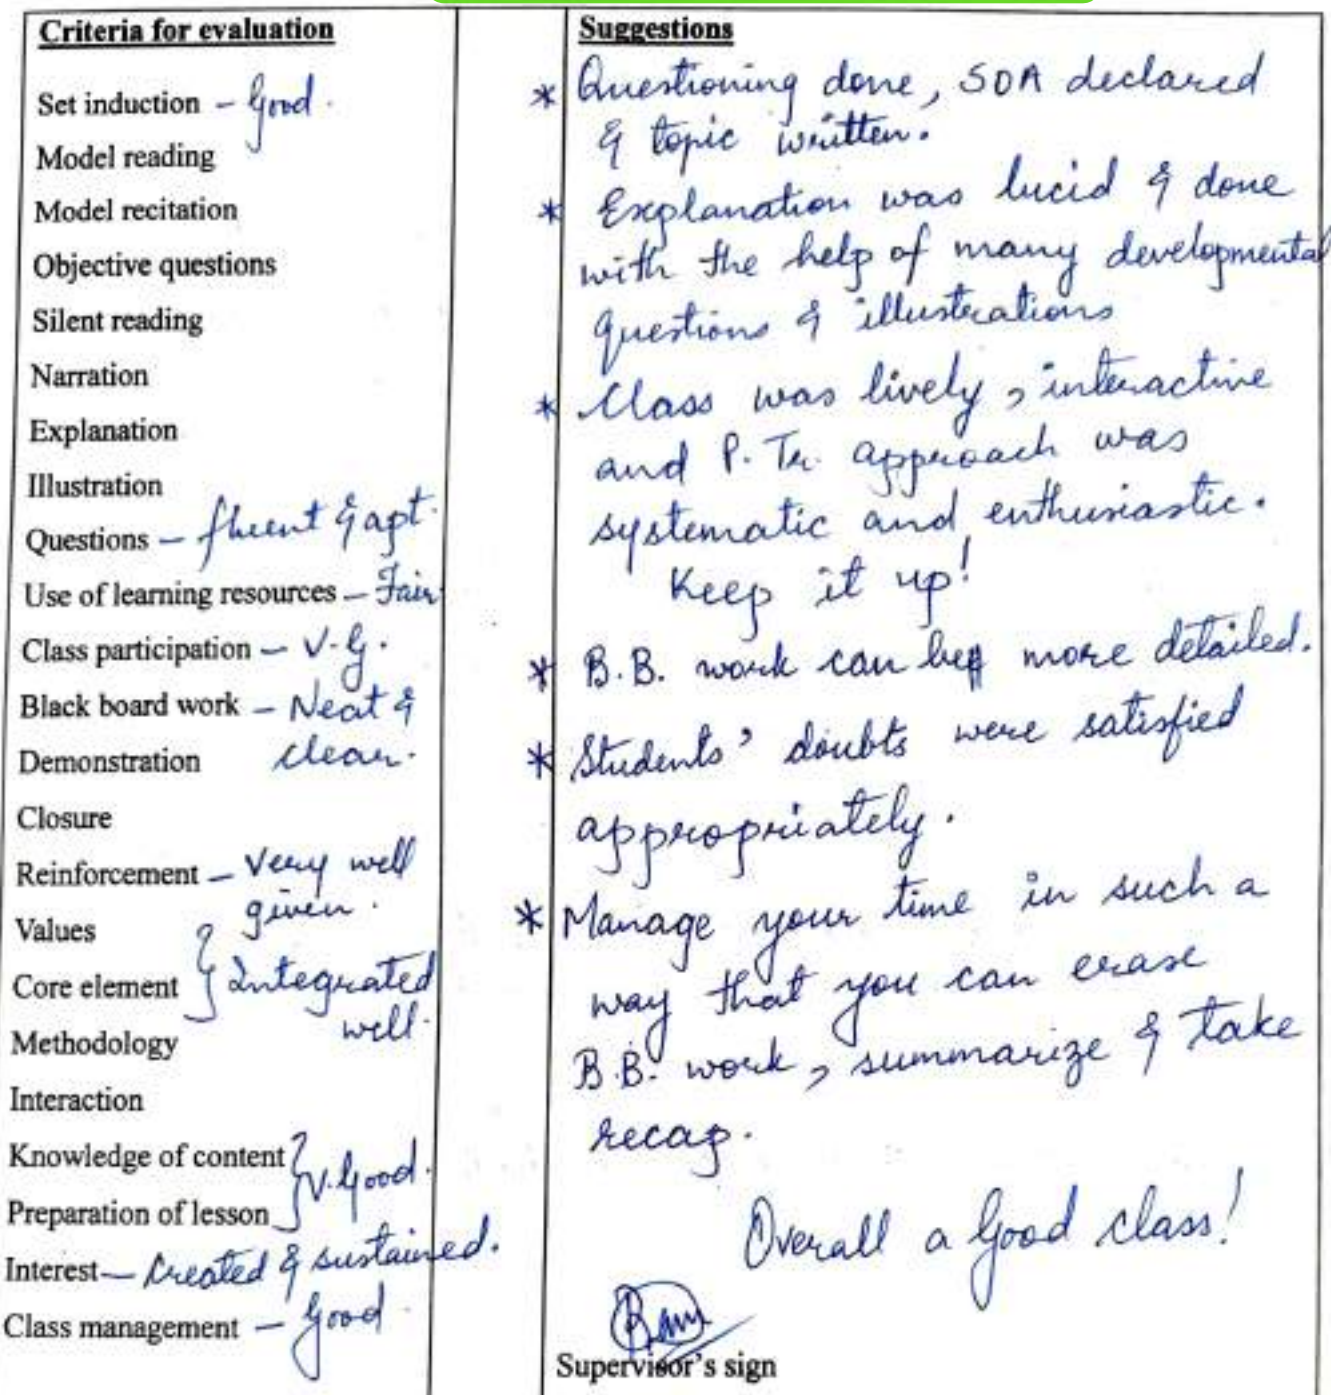 Criteria for evaluation
Set induction – Good.
Model reading
Model recitation
Objective questions
Silent reading
Narration
Explanation
Illustration
Questions – fluent & apt.
Use of learning resources – Fair
Class participation – V.G.
Black board work – Neat &
Demonstration clear.
Closure
Reinforcement – Very well
given.
Values
Core element } Integrated
well.
Methodology
Interaction
Knowledge of content
} V. Good.
Preparation of lesson
Interest – Created & sustained.
Class management – Good
Suggestions
* Questioning done, SOA declared
& topic written.
* Explanation was lucid & done
with the help of many developmental
questions & illustrations
* Class was lively, interactive
and P. Tr. approach was
systematic and enthusiastic.
Keep it up!
* B.B. work can be more detailed.
* Students' doubts were satisfied
appropriately.
* Manage your time in such a
way that you can erase
B.B. work, summarize & take
recap.
Overall a Good class!
Supervisor's sign